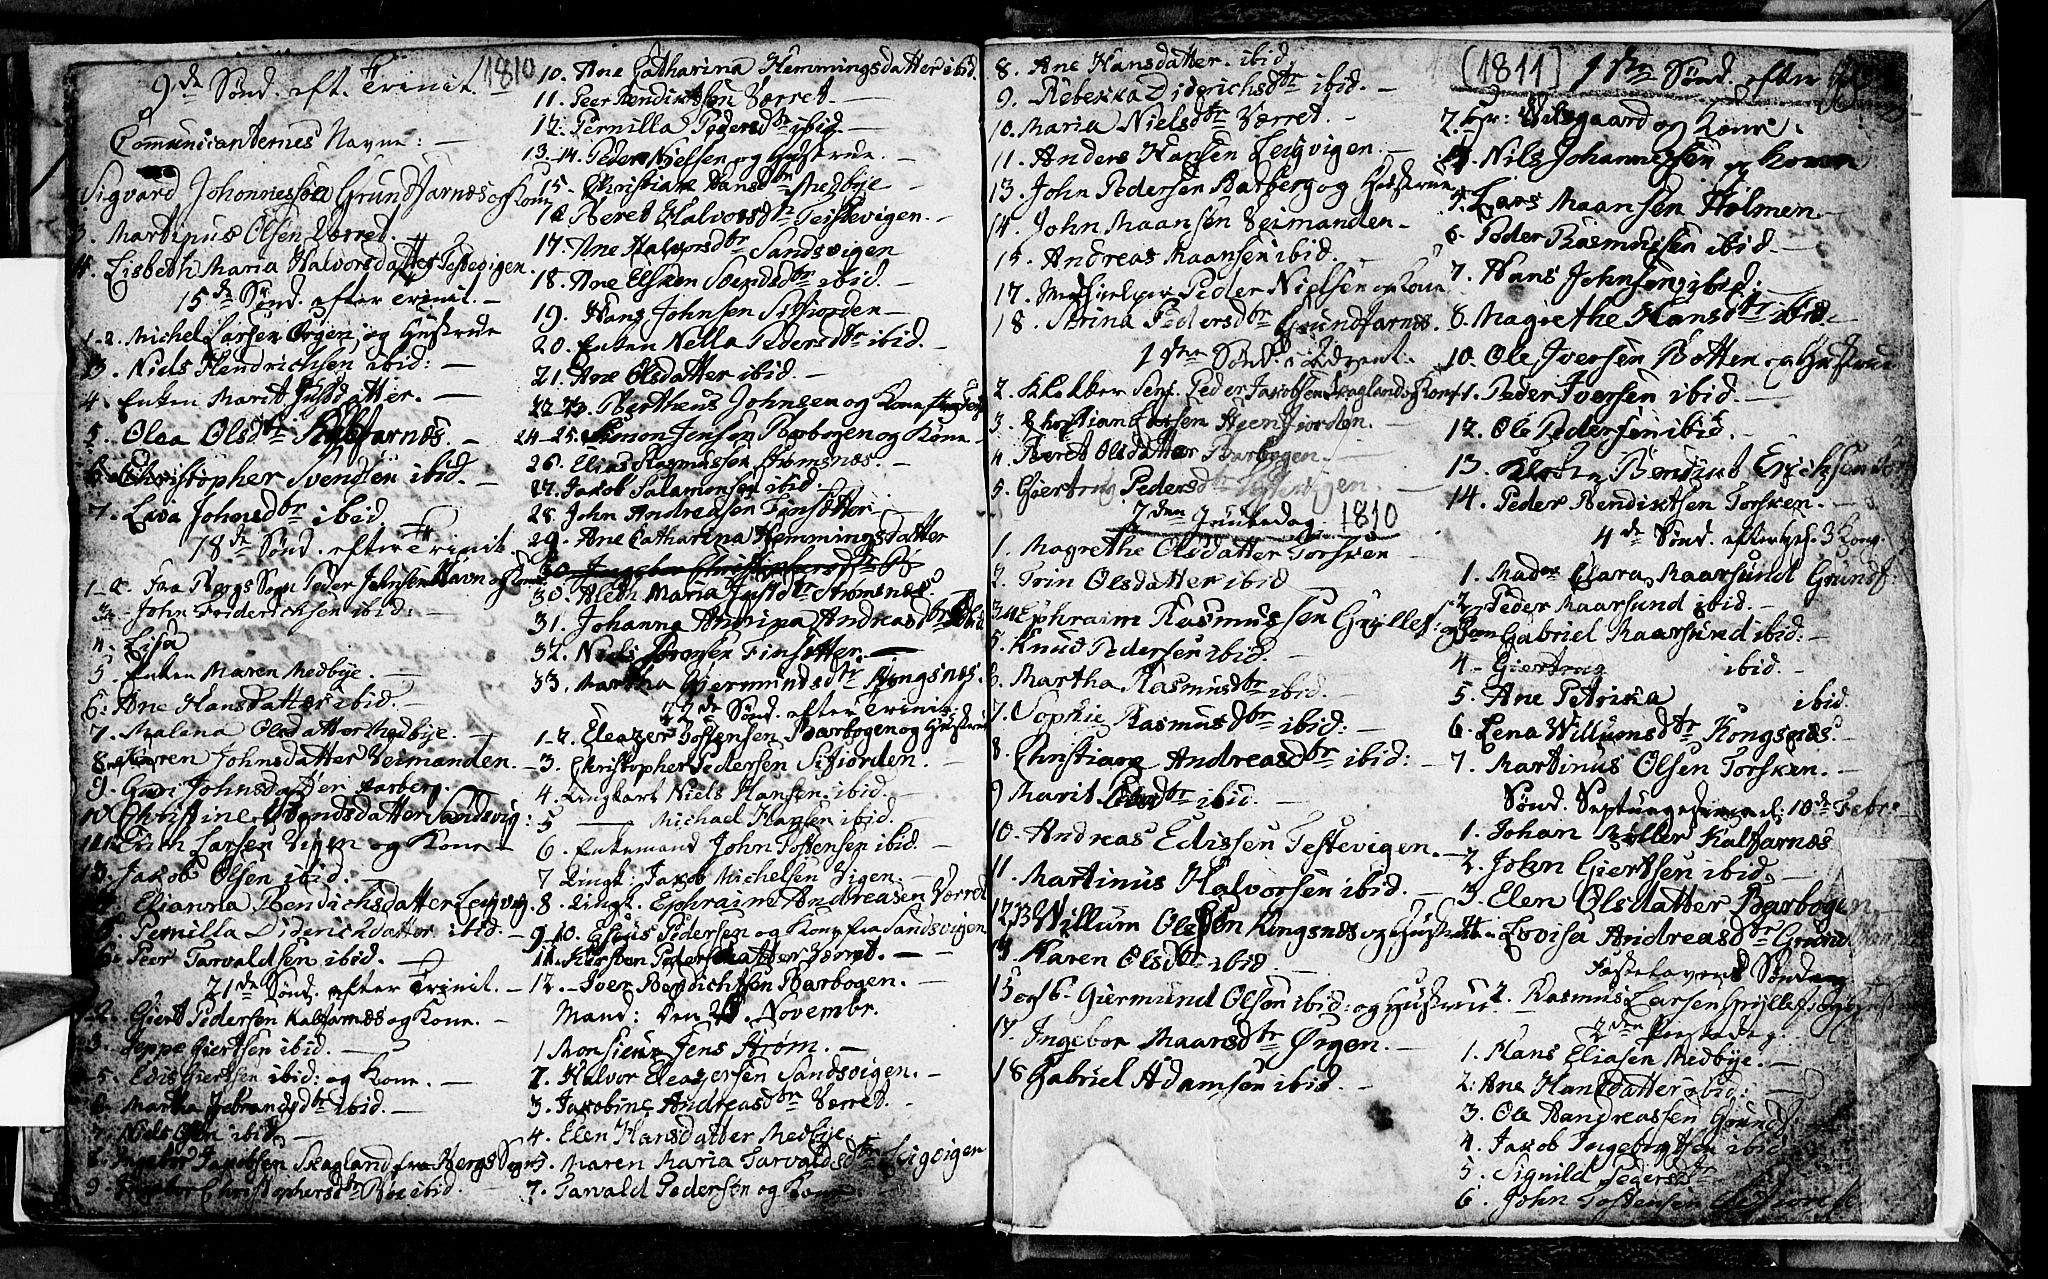 9de Sønd. eft. Trinit. 1810
Communicanternes Navne: —
Sigvard Johannessen Grundfarnæs og Kone
3. Martinus Olsen Værret. —
4. Lisbeth Maria Halvorsdatter Testevigen.
15de Sønd. efter Trinit. —
1-2. Michel Larsen Ørgen, og Hustrue
3. Niels Hendrichsen ibid: —
4. Enken Marit Jusdatter. —
5. Olea Olsdtr Kalfarnæs. —
6. Christopher Svendsen ibid. —
7. Lava Johnsdtr ibid.
18de Sønd. efter Trinit.
1-2. Fra Bergs Sogn Peder Jensen Havn og Kone
3. John Friderichsen ibid: —
4. Lisa
5. Enken Maren Medbye. —
6. Ane Hansdatter ibid. —
7. Malena Olsdatter Medbye. —
8. Karen Johnsdatter Veimanden. —
9. Guri Johnsdatter Barberg. —
10. Christine Svendsdatter Sandsvig:
11. Erich Larsen Vigen og Kone —
13. Jakob Olsen ibid. —
14. Elianna Bendichsdatter Leigvig
15. Pernilla Diderichdatter ibid. —
16. Peer Tarvaldsen ibid. —
21de Sønd. efter Trinit. —
1-2. Giert Pedersen Kalfarnæs og Kone. —
3. Jeppe Giertsen ibid. —
5. Edis Giertsen ibid: og Kone. —
6. Martha Isbrandsdtr ibid. —
7. Niels Olsen ibid. —
8. Jakobsen Skagland fra Bergs Sogn
9. Christophersdtr Bøe ibid.
10. Ane Catharina Hemmingsdatter ibid.
11. Peer Bendiktsen Værret. —
12. Pernilla Pedersdtr ibid. —
13-14. Peder Nielsen og Hustrue. —
15. Christiane Hansdtr Medbye —
16. Beret Halvorsdtr Testevigen. —
17. Ane Halvorsdtr Sandsvigen
18. Ane Elsken Svendsdtr ibid. —
19. Hans Johnsen Sifjorden —
20. Enken Nella Pedersdtr ibid. —
21. Ane Olsdatter ibid —
22-23. Bertheus Johnsen og Kone
24-25. Simon Jensen Barbogen og Kone —
26. Elias Rasmussen Strømsnæs. —
27. Jakob Salamonsen ibid.
28. John Andreasen Finsætter. —
29. Ane Catharina Hemmingsdatter
30. Ingebor Christophersdtr Bø
30. Aleth Maria Justdtr Strømsnæs.
31. Johanna Andrina Andreasdtr ibid
32. Niels Sørensen Finsætter. —
33. Martha Giermundsdtr Kongsnæs.
22de Sønd. efter Trinit:
1-2. Eleazer Tostensen Barbogen og Hustrue
3. Christopher Pedersen Sifiorden. —
4. Ungkarl Niels Hansen ibid. —
5 —— Michael Hansen ibid.
6. Enkemand John Tostensen ibid. —
7 Ungk: Jakob Michelsen Vigen. —
8. Ungk. Ephraim Andreasen Værret
9-10. Esaias Pedersen og Kone fra Sandsvigen
11. Kirsten Pedersdatter Værret. — —
12. Iver Bendichtsen Barbogen. —
Mand: den 26. Novembr.
1 Monsieur Jens Strøm. —
2. Halvor Eleazersen Sandsvigen. —
3. Jakobine Andreasdtr Værret. —
4. Elen Hansdatter Medbye
5. Maren Maria Tarvaldsdtr Leigvigen
7. Tarvald Pedersen og Kone
8. Ane Hansdatter. ibid.
9. Rebekka Diderichsdtr ibid. —
10. Maria Nielsdtr Værret. —
11. Anders Hansen Leigvigen. —
13. John Pedersen Barberg og Hustrue
14. John Maansen Veimanden. —
15. Andreas Maansen ibid. —
17. Medhielper Peder Nielsen og Kone
18. Strina Pedersdtr Grundfarnæs.
1ste Sønd. i Advent.
2. Klokker Senj. Peder Jakobsen Skagland og Kone
3. Christian Larsen Steenfiorden. —
4. Beret Olsdatter Barbogen. —
5. Giertrug Pedersdtr Testevigen. —
2den Juuledag. 1810
1. Magrethe Olsdatter Torsken —
2. Trin Olsdatter ibid —
3-4 Ephraim Rasmussen Gryllef: og Kone
5. Knud Pedersen ibid. —
6. Martha Rasmusdtr ibid. —
7. Sophie Rasmusdtr ibid: —
8. Christiana Andreasdtr ibid: —
9 Marit Pedersdtr ibid. —
10. Andreas Edissen Testevigen. —
11. Martinus Halvorsen ibid. —
12.13 Willum Olesen Kongsnæs og Hustrue
14. Karen Olsdtr ibid. —
15 og 16. Giermund Olsen ibid: og Hustrue.
17. Ingebor Maarsdtr Ørgen. —
18 Gabriel Adamsen ibid. —
(1811) 1ste Sønd. efter
2. Hr: Wilsgaard og Kone.
4. Nils Johannessen og Konen
5. Lars Maansen Holmen. —
6. Peder Rasmussen ibid. —
7. Hans Johnsen ibid: —
8. Magrethe Hansdtr ibid. —
10. Ole Iversen Botten og Hustrue
11. Peder Iversen ibid. —
12. Ole Pedersen ibid. —
13. Bendikt Erichsen
14. Peder Bendiktsen Torsken. —
4de Sønd. efter hel. 3 Kong.
1. Madme Clara Maarsund Grundf:
2. Peder Maarsund ibid. —
3. Gabriel Maarsund ibid: —
4. Giertrug ibid. —
5. Ane Petrika ibid.
6. Lena Willumsdtr Kongsnæs. —
7. Martinus Olsen Torsken. —
Sønd. Septuagesima d: 10de Febr:
1. Johan Møller Kalfarnæs
2. John Giertsen ibid. —
3. Elen Olsdatter Barbogen —
4. Lovisa Andreasdtr Grundfarnæs
Fastelavens Søndag
2. Rasmus Larsen Gryllef: og Hustrue
2den Paaskedag.
1. Hans Eliasen Medbye. —
2. Ane Hansdatter ibid: —
3. Ole Andreassen Grundf:
4. Jakob Ingebrigtsen ibid
5. Signild Pedersdtr
6. John Tostensen Sifiorden